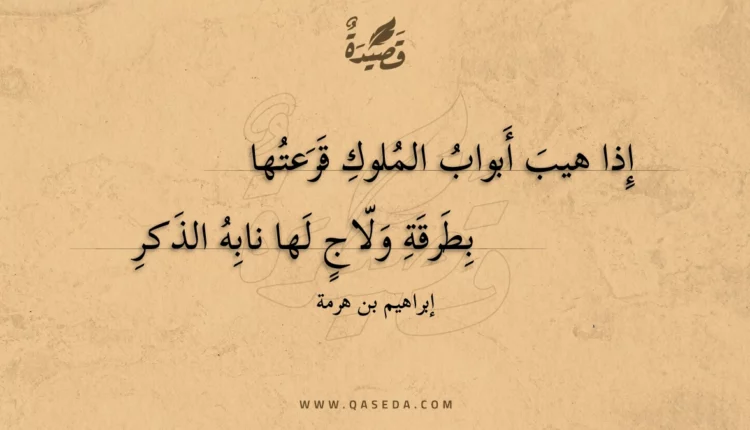 قَصِيْدَةٌ
إِذا هيبَ أَبوابُ المُلوكِ قَرَعتُها
بِطَرقَةِ وَلّاجٍ لَها نابِهُ الذَكرِ
إبراهيم بن هرمة
WWW.QASEDA.COM